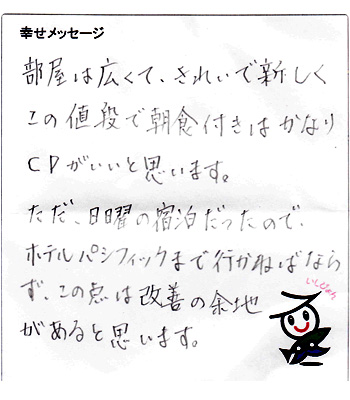 幸せメッセージ
部屋は広くて、きれいで新しく
この値段で朝食付きはかなり
CPがいいと思います。
ただ、日曜の宿泊だったので、
ホテルパシフィックまで行かねばなら
ず、この点は改善の余地
があると思います。